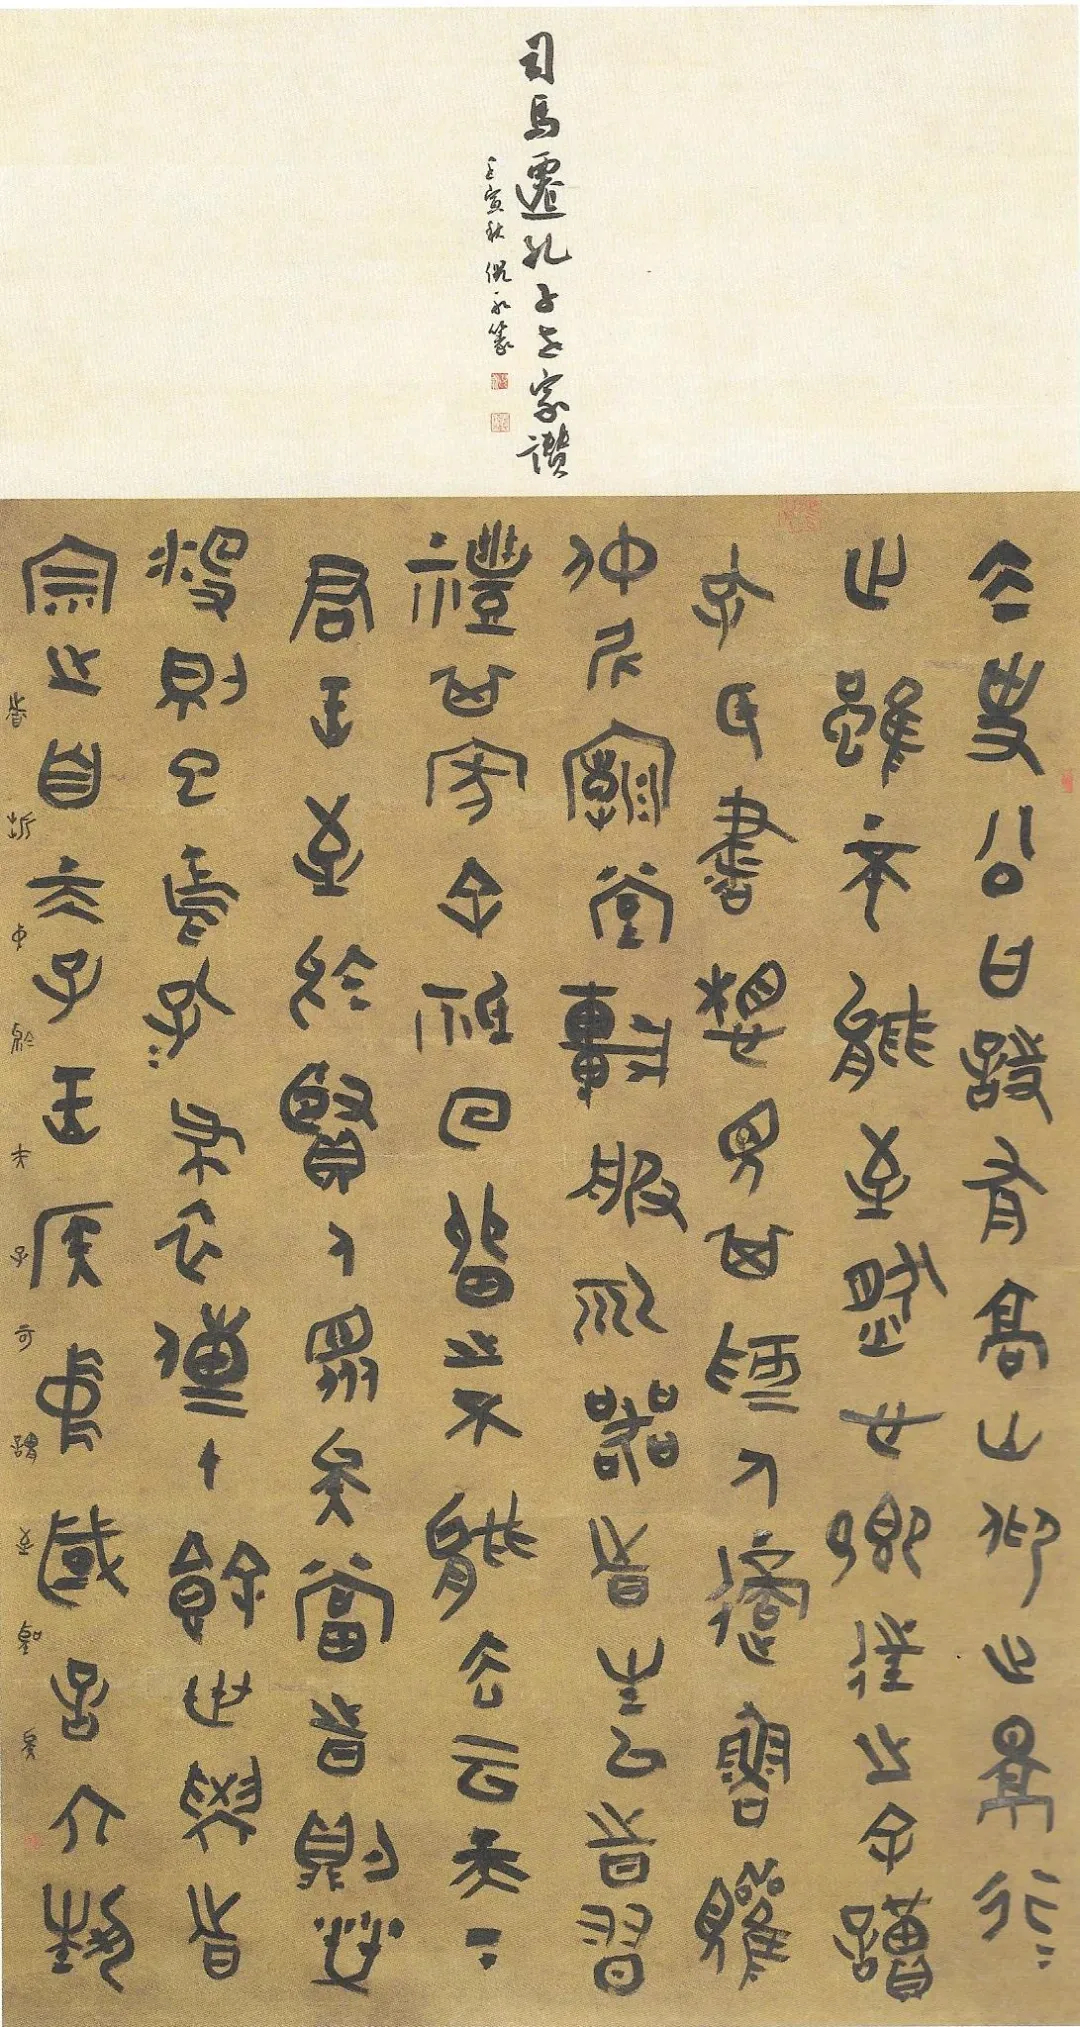 司馬遷孔子世家讚
壬寅秋
太史公曰詩有高山仰止景行=
止雖不能至然心鄉往之余讀
孔氏書想見其為人適魯觀
仲尼廟堂車服禮器諸生以時習
禮其家余低回留之不能去云天=
君王至於賢人眾矣當時則榮
沒則已焉孔=布衣傳十餘世學者
宗之自天子王侯中國言六藝
者折中於夫子可謂至聖矣